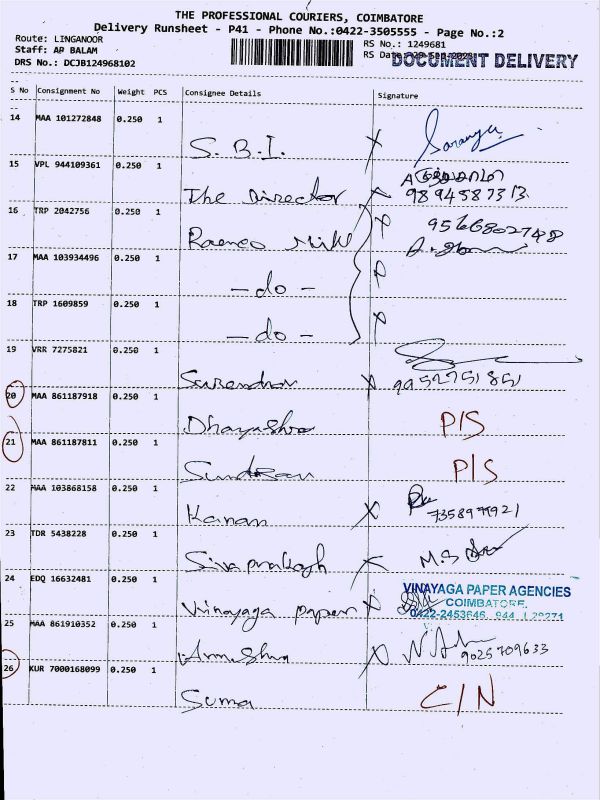 THE PROFESSIONAL COURIERS, COIMBATORE
Delivery Runsheet - P41 - Phone No.:0422-3505555 - Page No.:2
Route: LINGANOOR RS No.: 1249681
Staff: AP BALAM RS Date: DOCUMENT DELIVERY
DRS No.: DCJB124968102
S No Consignment No Weight PCS Consignee Details Signature
14 MAA 101272848 0.250 1 S.B.I. X Saranya
15 VPL 944109361 0.250 1 The Director X 9894587313
16 TRP 2042756 0.250 1 X 9566802748
17 MAA 103934496 0.250 1 - do - X
18 TRP 1609859 0.250 1 - do - X
19 VRR 7275821 0.250 1 Surendran X 9952751851
20 MAA 861187918 0.250 1 P/S
21 MAA 861187811 0.250 1 P/S
22 MAA 103868158 0.250 1 Kanan X
23 TDR 5438228 0.250 1 Sivaprakash X M.S
24 EDQ 16632481 0.250 1 Vinayaga paper X VINAYAGA PAPER AGENCIES
COIMBATORE.
0422-2453646
25 MAA 861910352 0.250 1 X 9025709633
26 KUR 7000168099 0.250 1 Suma C/N